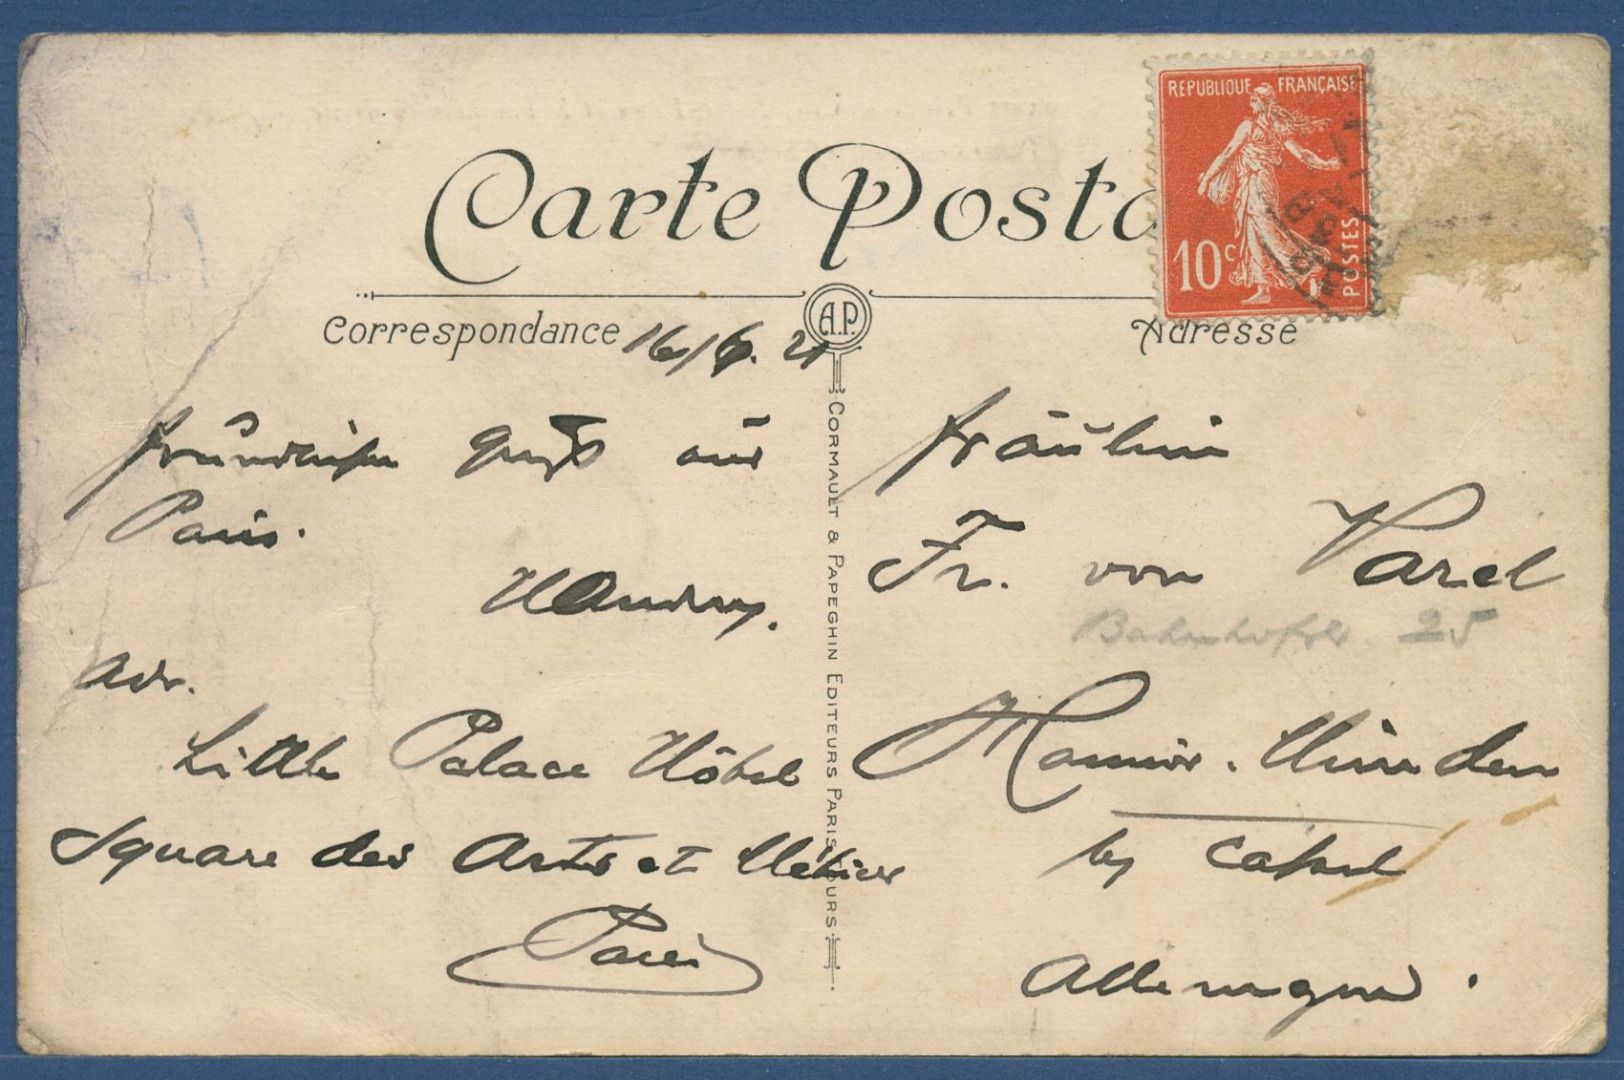 REPUBLIQUE FRANÇAISE
10c
POSTES
Carte Posta
Correspondance
A.P.
Adresse
16/6. 21
Gruß aus
Paris.
Adr.
Little Palace Hôtel
Square des Arts et Métiers
Paris
CORMAULT & PAPEGHIN EDITEURS PARIS TOURS
Fräulein
Fr. von Varel
Bahnhofstr 25
Hannov. Münden
by Cassel
Allemagne.